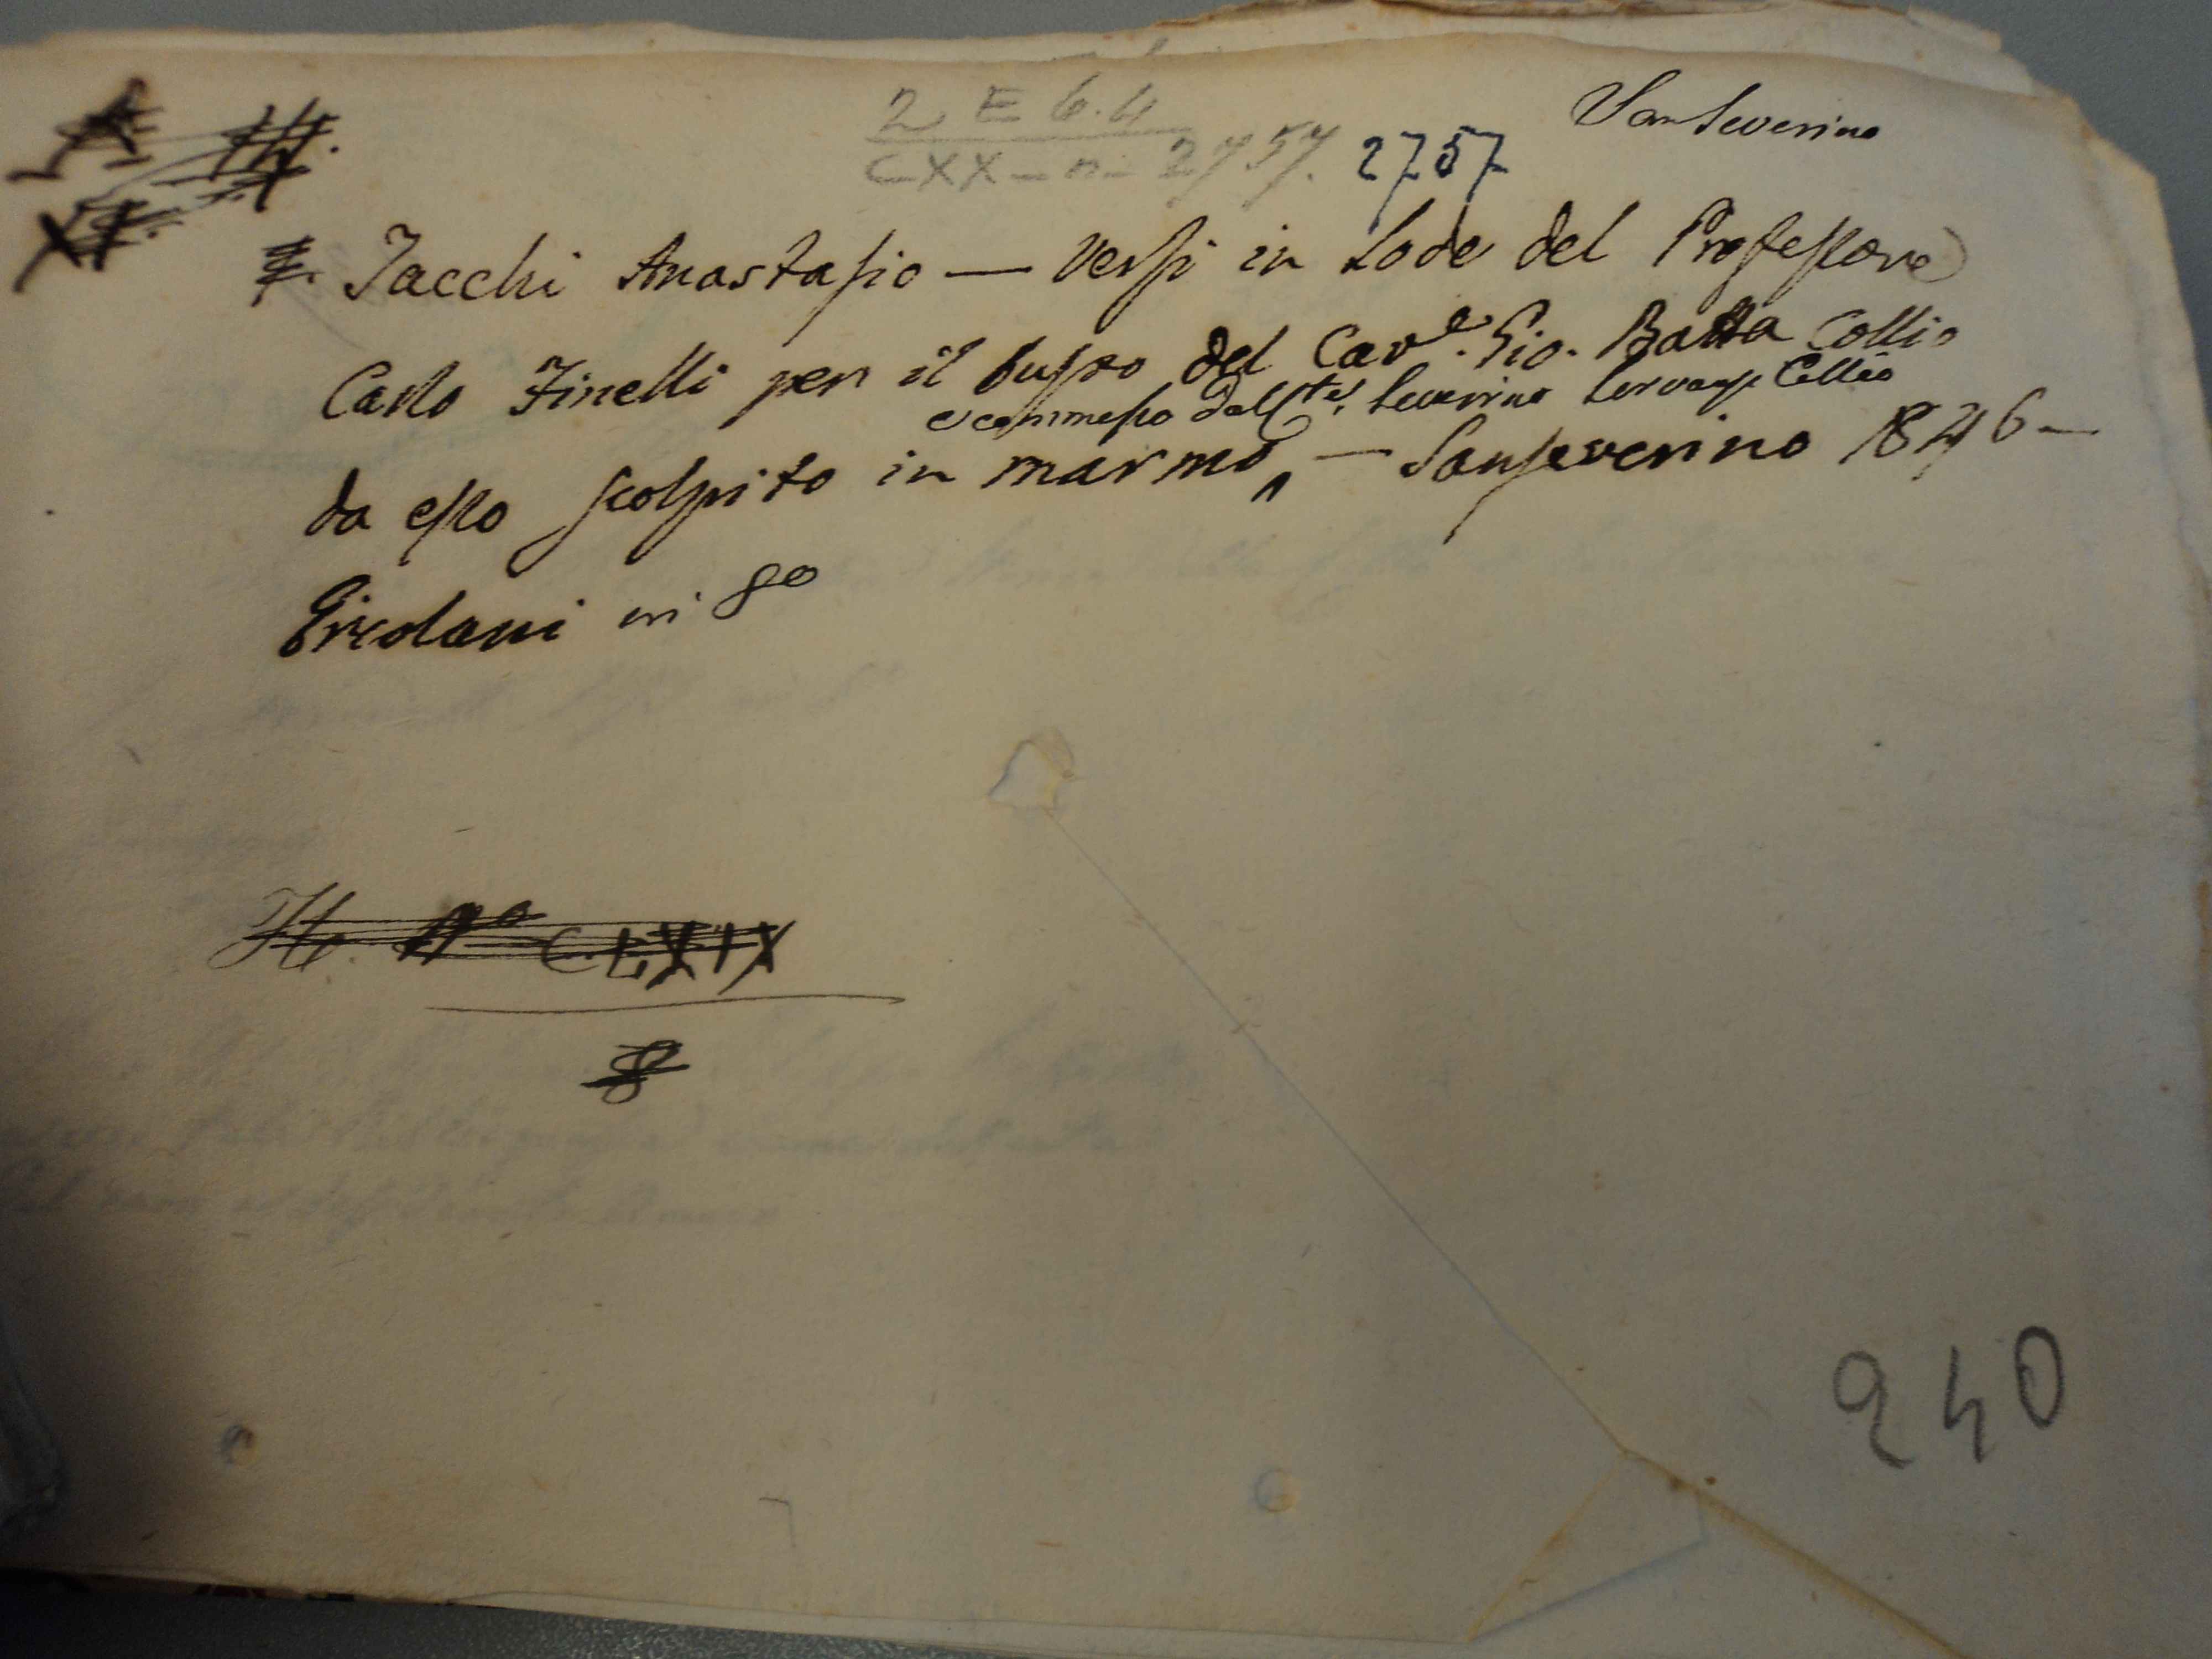 2 E 6.4
CXX - n - 2757. 2757
Sanseverino
Tacchi Anastasio — Versi in Lode del Professore
Carlo Finelli per il busto del Cav.e Gio. Batta Collio
e commesso dal Cte. Severino Servanzi Collio
da esso scolpito in marmo, — Sanseverino 1846 —
Ercolani in 8o
No CLXIX
8
240